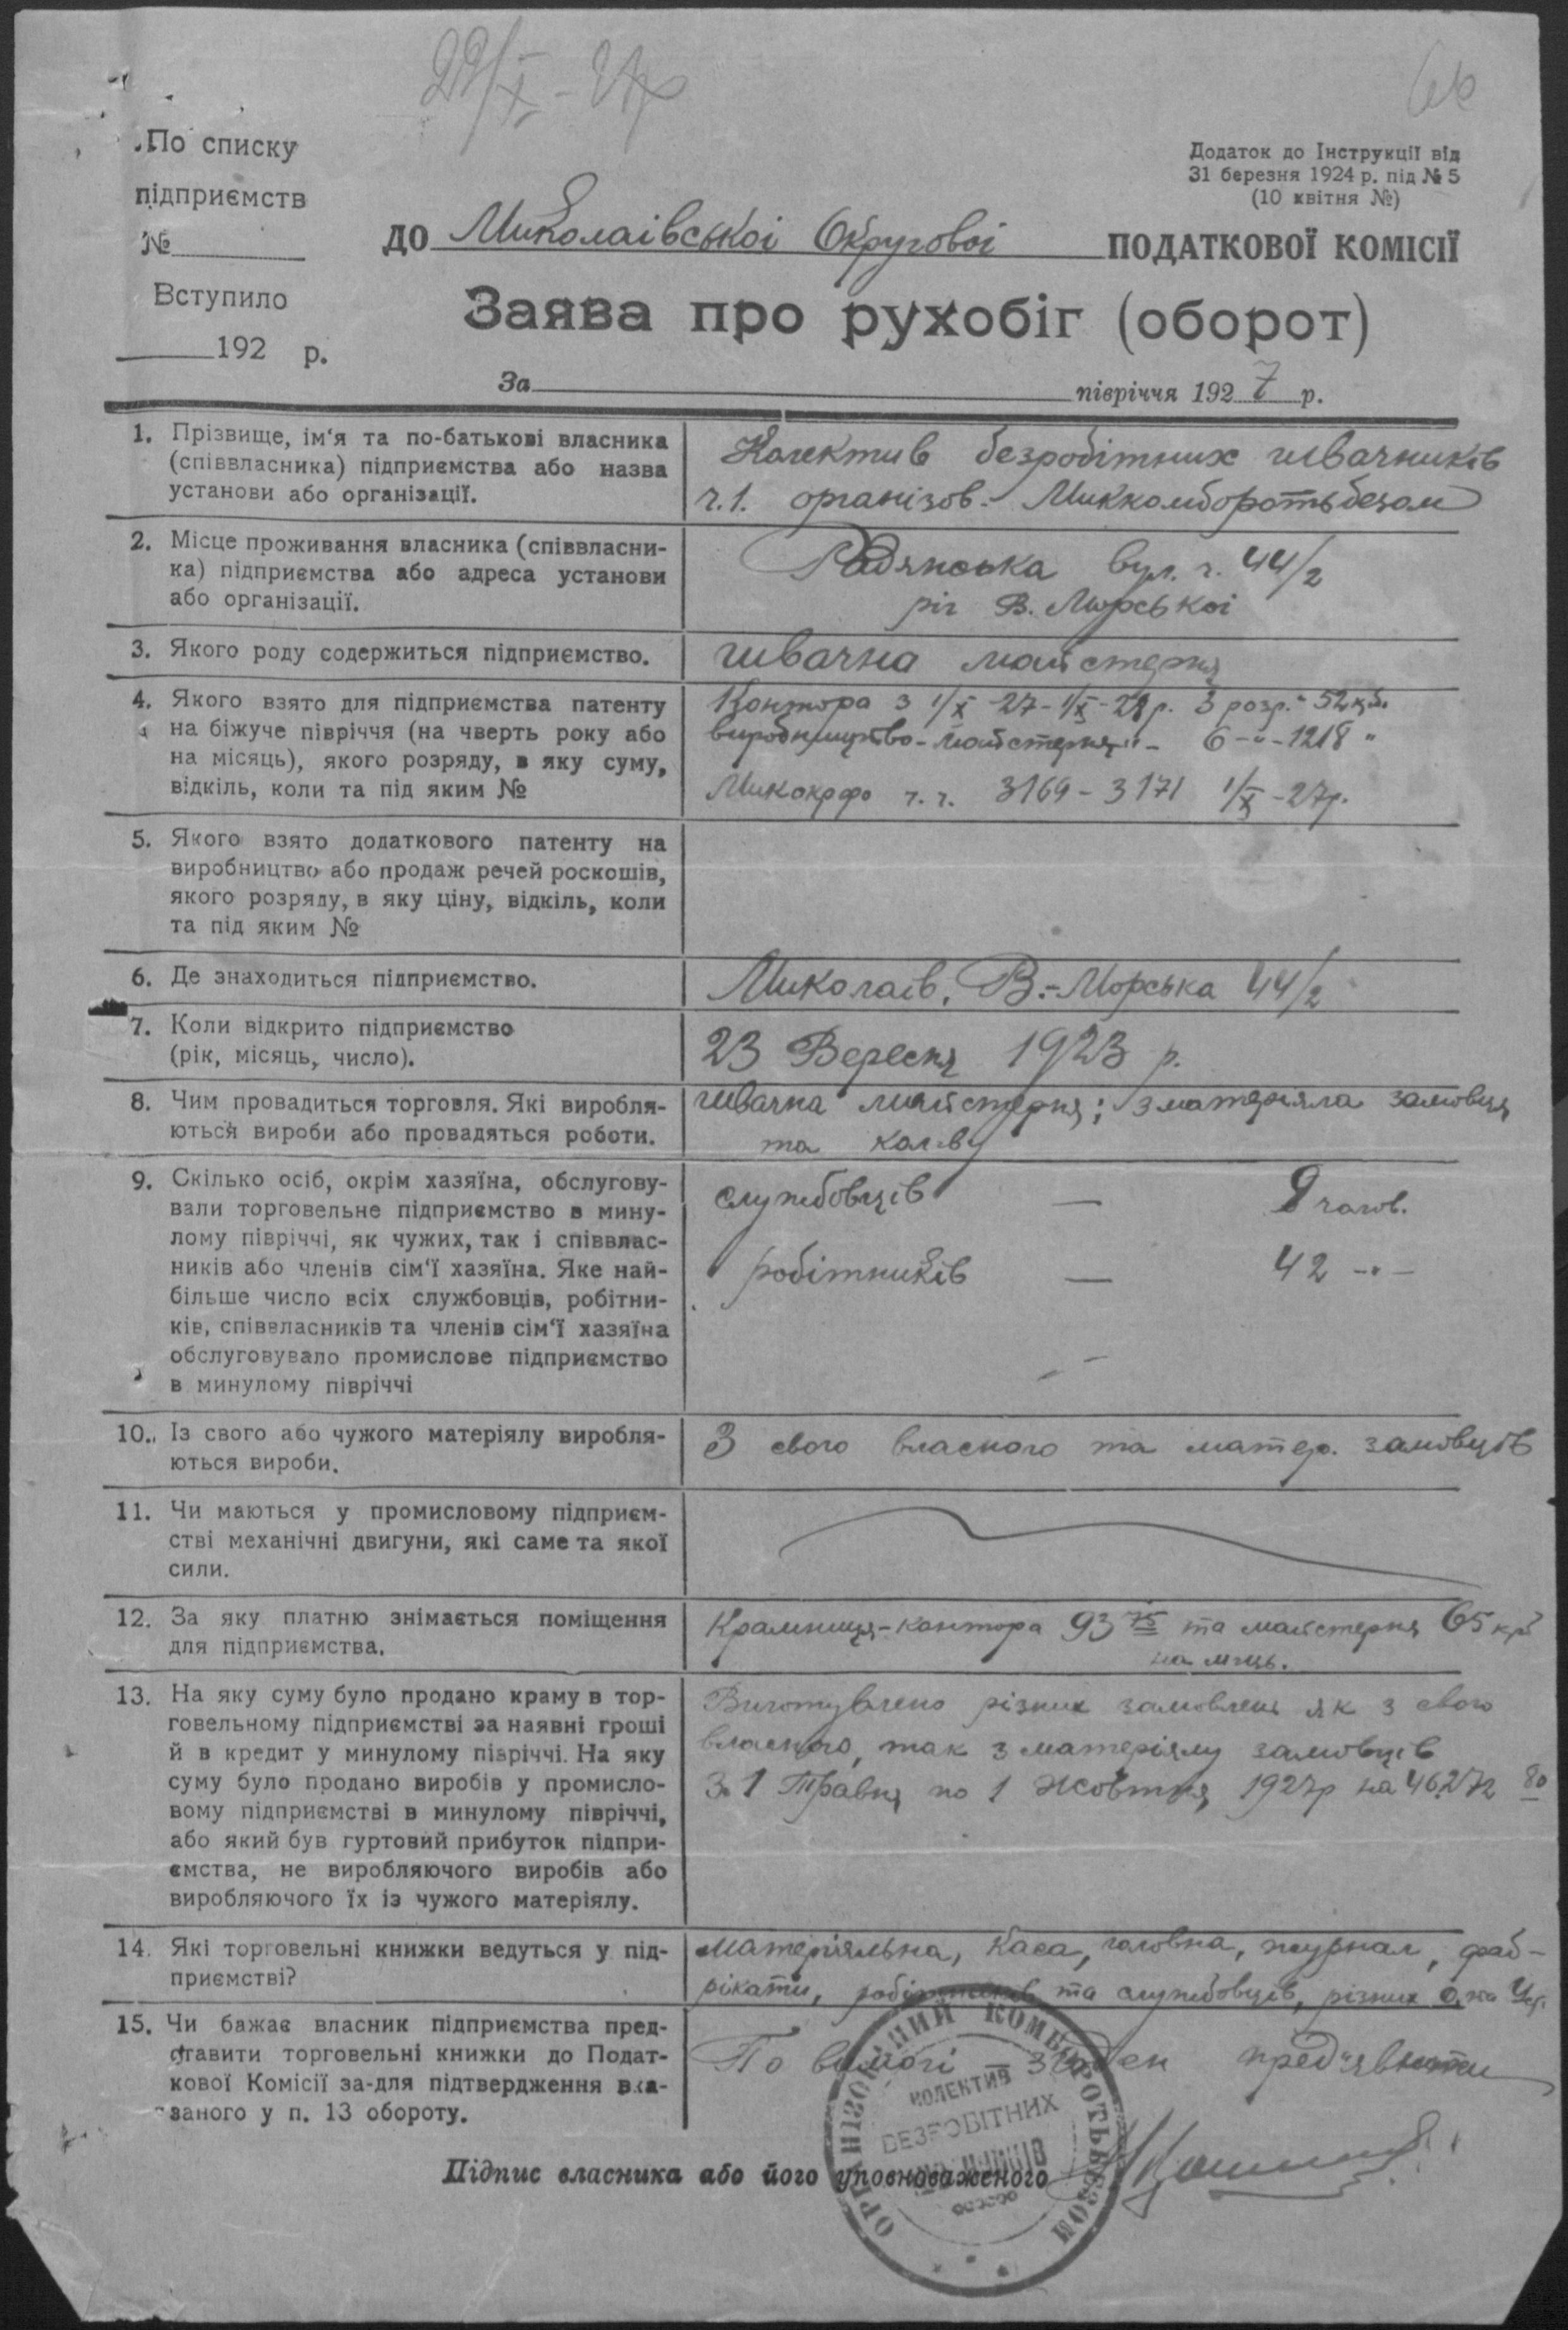 29/X - 27р
По списку
підприємств
№
Вступило
192 р.
Додаток до Інструкції від
31 березня 1924 р. під № 5
(10 квітня №)
до Миколаівськоі Округовоі ПОДАТКОВОЇ КОМІСІЇ
Заява про рухобіг (оборот)
За півріччя 1927 р.
1. Прізвище, ім'я та по-батькові власника
(співвласника) підприємства або назва
установи або організації.
Колектив безробітних швачників
ч.1. організов. Миккомборотьбезом
2. Місце проживання власника (співвласни-
ка) підприємства або адреса установи
або організації.
Радянська вул. ч. 44/2
ріг В. Морськоі
3. Якого роду содержиться підприємство.
швачна майстерня
4. Якого взято для підприємства патенту
на біжуче півріччя (на чверть року або
на місяць), якого розряду, в яку суму,
відкіль, коли та під яким №
Контора з 1/X -27 - 1/X - 28 р. 3 розр. - 52
виробництво - майстерня -"- 6 -"- 1218 "
Микокрфо ч.ч. 3169 - 3171 1/X - 27р.
5. Якого взято додаткового патенту на
виробництво або продаж речей роскошів,
якого розряду, в яку ціну, відкіль, коли
та під яким №
6. Де знаходиться підприємство.
Миколаів, В.-Морська 44/2
7. Коли відкрито підприємство
(рік, місяць, число).
23 Вересня 1923 р.
8. Чим провадиться торговля. Які виробля-
ються вироби або провадяться роботи.
швачна майстерня; з матеріяла замовця
та кол-ву
9. Скілько осіб, окрім хазяїна, обслугову-
вали торговельне підприємство в мину-
лому півріччі, як чужих, так і співвлас-
ників або членів сім'ї хазяїна. Яке най-
більше число всіх службовців, робітни-
ків, співвласників та членів сім'ї хазяїна
обслуговувало промислове підприємство
в минулому півріччі
службовців — 9 чолов.
робітників — 42 -"-
10. Із свого або чужого матеріялу виробля-
ються вироби.
З свого власного та матер. замовців
11. Чи маються у промисловому підприєм-
стві механічні двигуни, які саме та якої
сили.
12. За яку платню знімається поміщення
для підприємства.
Крамниця-контора 93 75 та майстерня 65 кр
на місць.
13. На яку суму було продано краму в тор-
говельному підприємстві за наявні гроші
й в кредит у минулому півріччі. На яку
суму було продано виробів у промисло-
вому підприємстві в минулому півріччі,
або який був гуртовий прибуток підпри-
ємства, не виробляючого виробів або
виробляючого їх із чужого матеріялу.
Виготувлено різних замовлень як з свого
власного, так з матеріялу замовців
З 1 Травня по 1 Жовтня 1927р на 46272 80
14. Які торговельні книжки ведуться у під-
приємстві?
Матеріяльна, Каса, головна, журнал, фаб-
рікати, робітників та службовців, різних
15. Чи бажає власник підприємства пред-
ставити торговельні книжки до Подат-
кової Комісії за-для підтвердження вка-
заного у п. 13 обороту.
По вимогі — згоден пред'явити
Підпис власника або його уповноваженого
ОРГАНІЗОВАНИЙ КОМБОРОТЬБЕЗОМ
КОЛЕКТИВ
БЕЗРОБІТНИХ